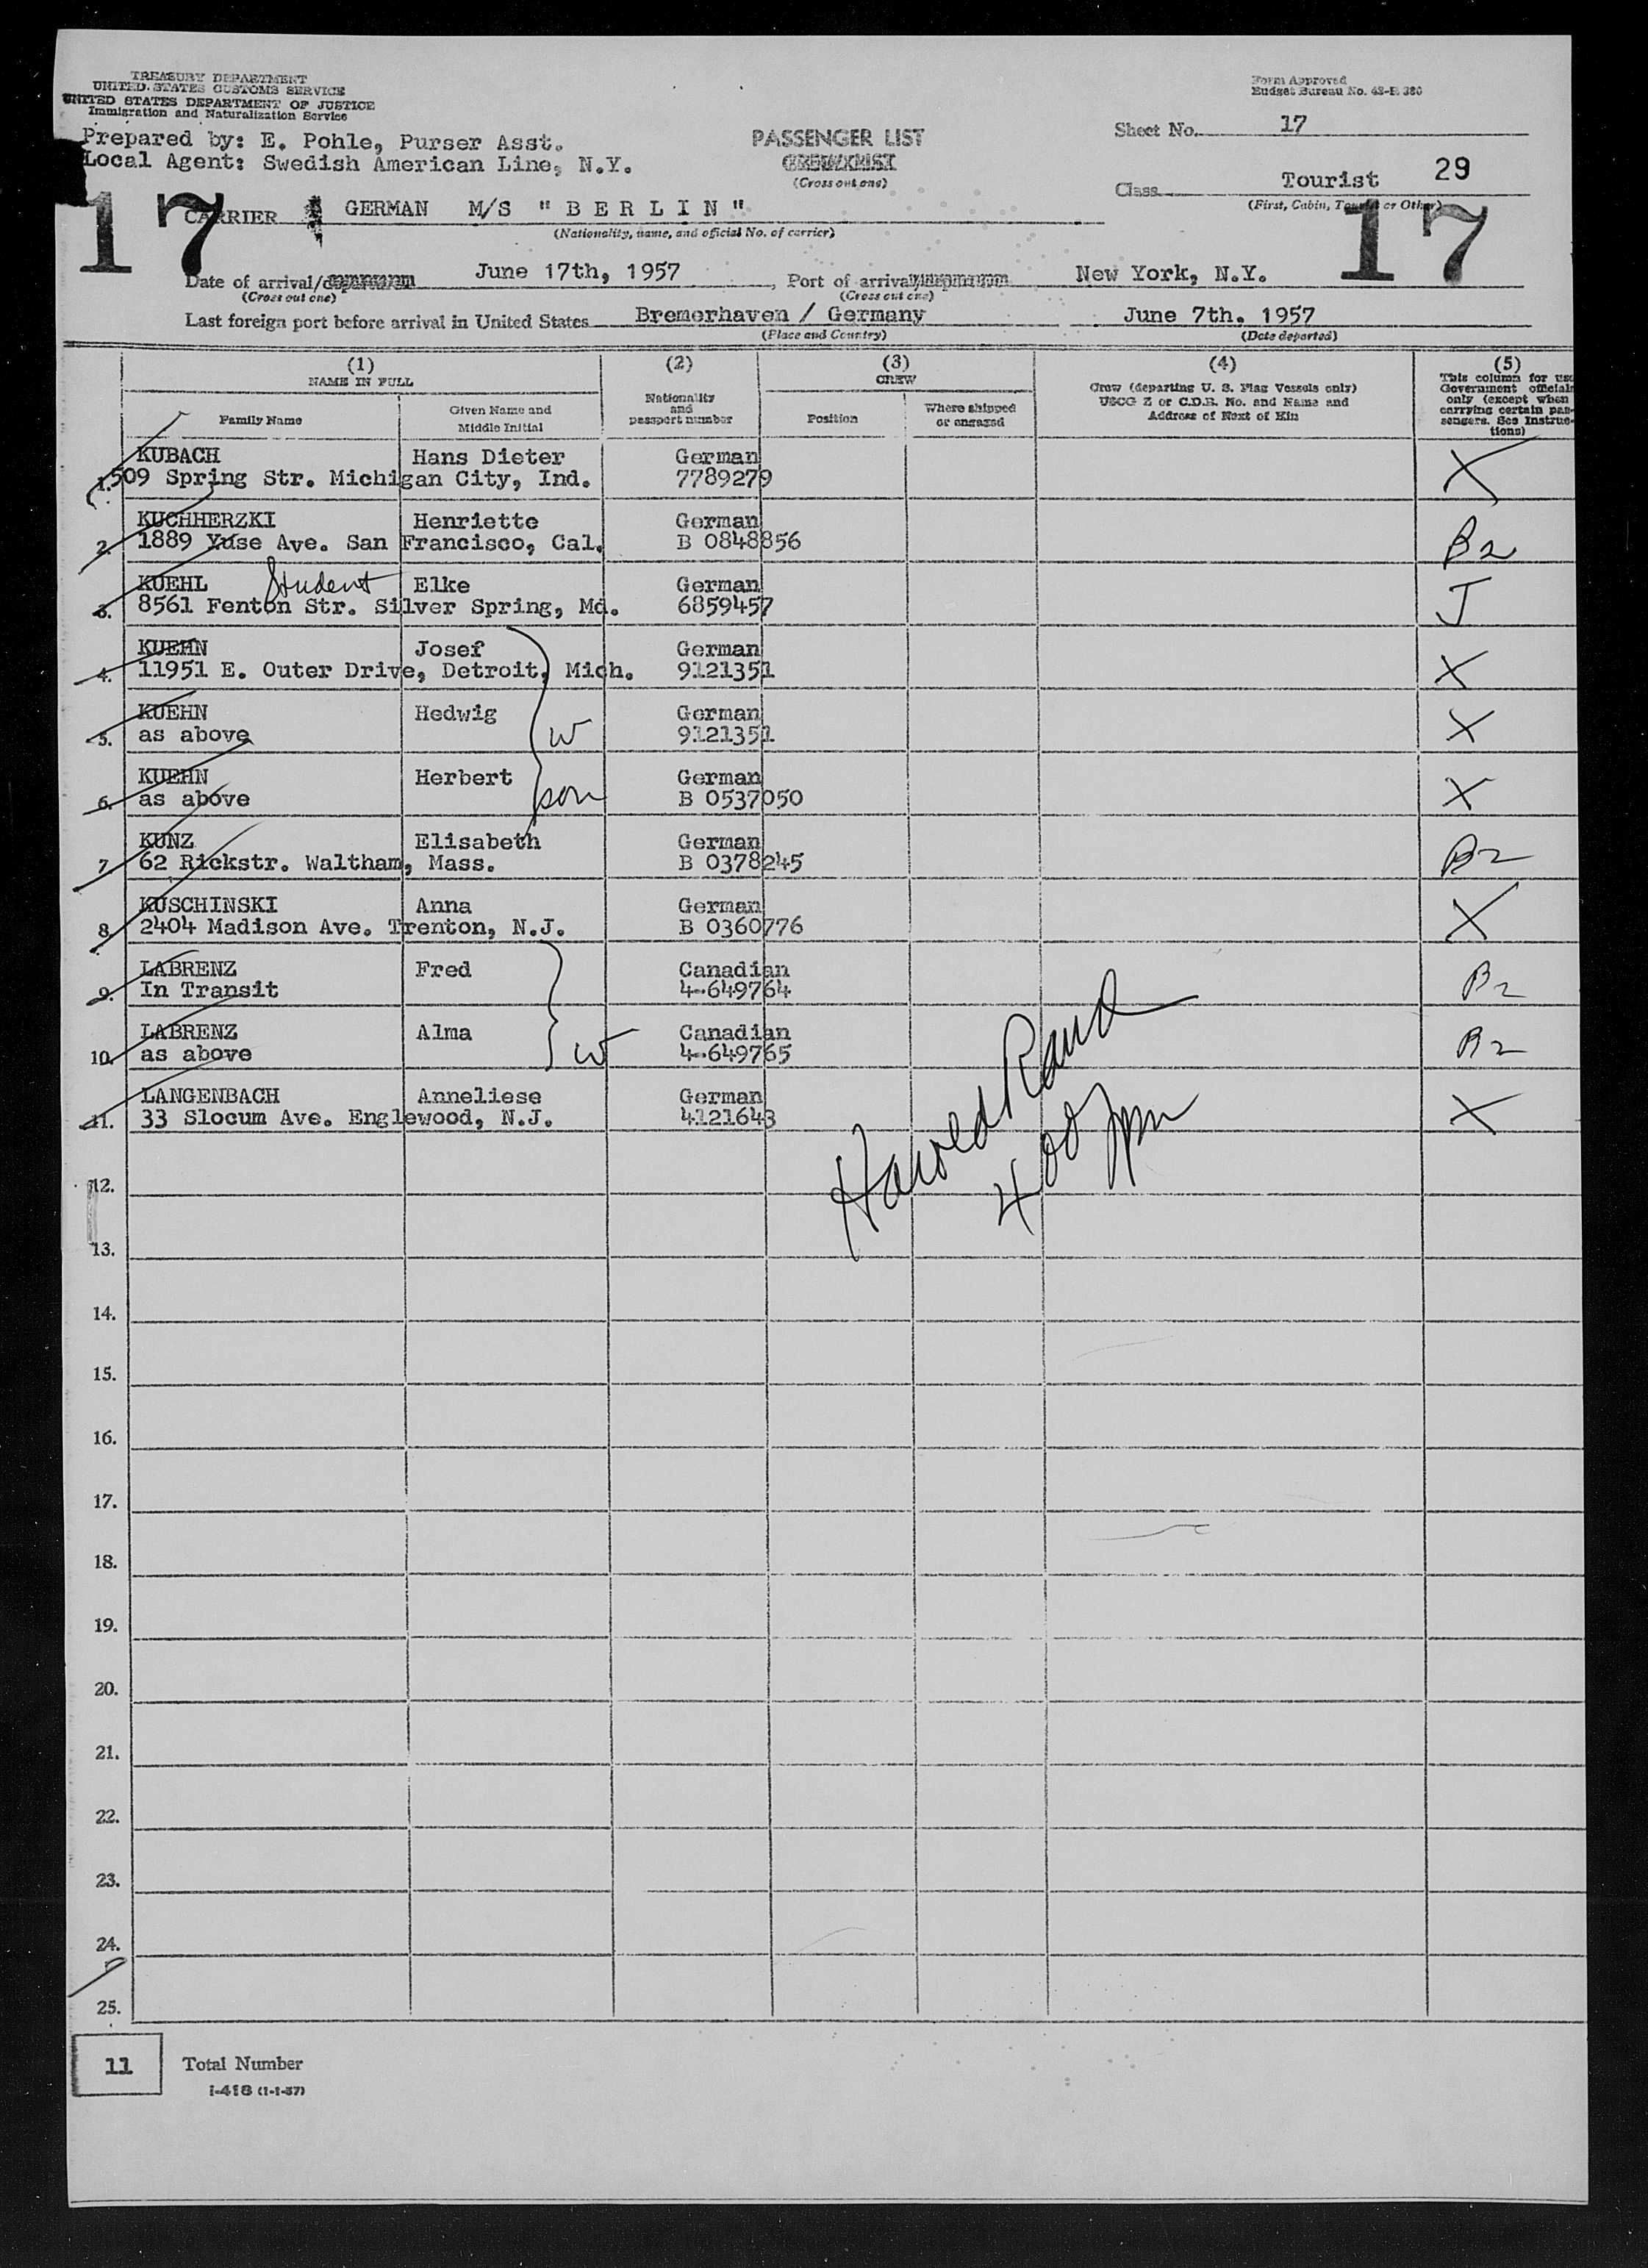 TREASURY DEPARTMENT
UNITED STATES CUSTOMS SERVICE
UNITED STATES DEPARTMENT OF JUSTICE
Immigration and Naturalization Service
Form Approved
Budget Bureau No. 43-R 380
Prepared by: E. Pohle, Purser Asst.
Local Agent: Swedish American Line, N.Y.
PASSENGER LIST
CREW LIST
(Cross out one)
Sheet No. 17
Class Tourist 29
(First, Cabin, Tourist or Other)
17 17
CARRIER GERMAN M/S "BERLIN"
(Nationality, name, and official No. of carrier)
Date of arrival/departure June 17th, 1957, Port of arrival/departure New York, N.Y.
(Cross out one) (Cross out one)
Last foreign port before arrival in United States Bremerhaven / Germany June 7th. 1957
(Place and Country) (Date departed)
(1) (2) (3) (4) (5)
NAME IN FULL
Family Name
Given Name and Middle Initial
Nationality and passport number
CREW
Position
Where shipped or engaged
Crew (departing U. S. Flag Vessels only)
USCG Z or C.D.B. No. and Name and
Address of Next of Kin
This column for use
Government officials
only (except when
carrying certain pas-
sengers. See Instruc-
tions)
KUBACH Hans Dieter German X
1. 509 Spring Str. Michigan City, Ind. 7789279
KUCHHERZKI Henriette German B2
2. 1889 Yuse Ave. San Francisco, Cal. B 0848856
KUEHL Student Elke German J
3. 8561 Fenton Str. Silver Spring, Md. 6859457
KUEHN Josef German X
4. 11951 E. Outer Drive, Detroit, Mich. 9121351
KUEHN Hedwig German X
5. as above W 9121351
KUEHN Herbert German X
6. as above son B 0537050
KUNZ Elisabeth German B2
7. 62 Rickstr. Waltham, Mass. B 0378245
KUSCHINSKI Anna German X
8. 2404 Madison Ave. Trenton, N.J. B 0360776
LABRENZ Fred Canadian B2
9. In Transit 4-649764
LABRENZ Alma Canadian B2
10. as above W 4-649765
LANGENBACH Anneliese German X
11. 33 Slocum Ave. Englewood, N.J. 4121643
Harold Rand
400 pm
12.
13.
14.
15.
16.
17.
18.
19.
20.
21.
22.
23.
24.
25.
11 Total Number
I-418 (1-1-57)